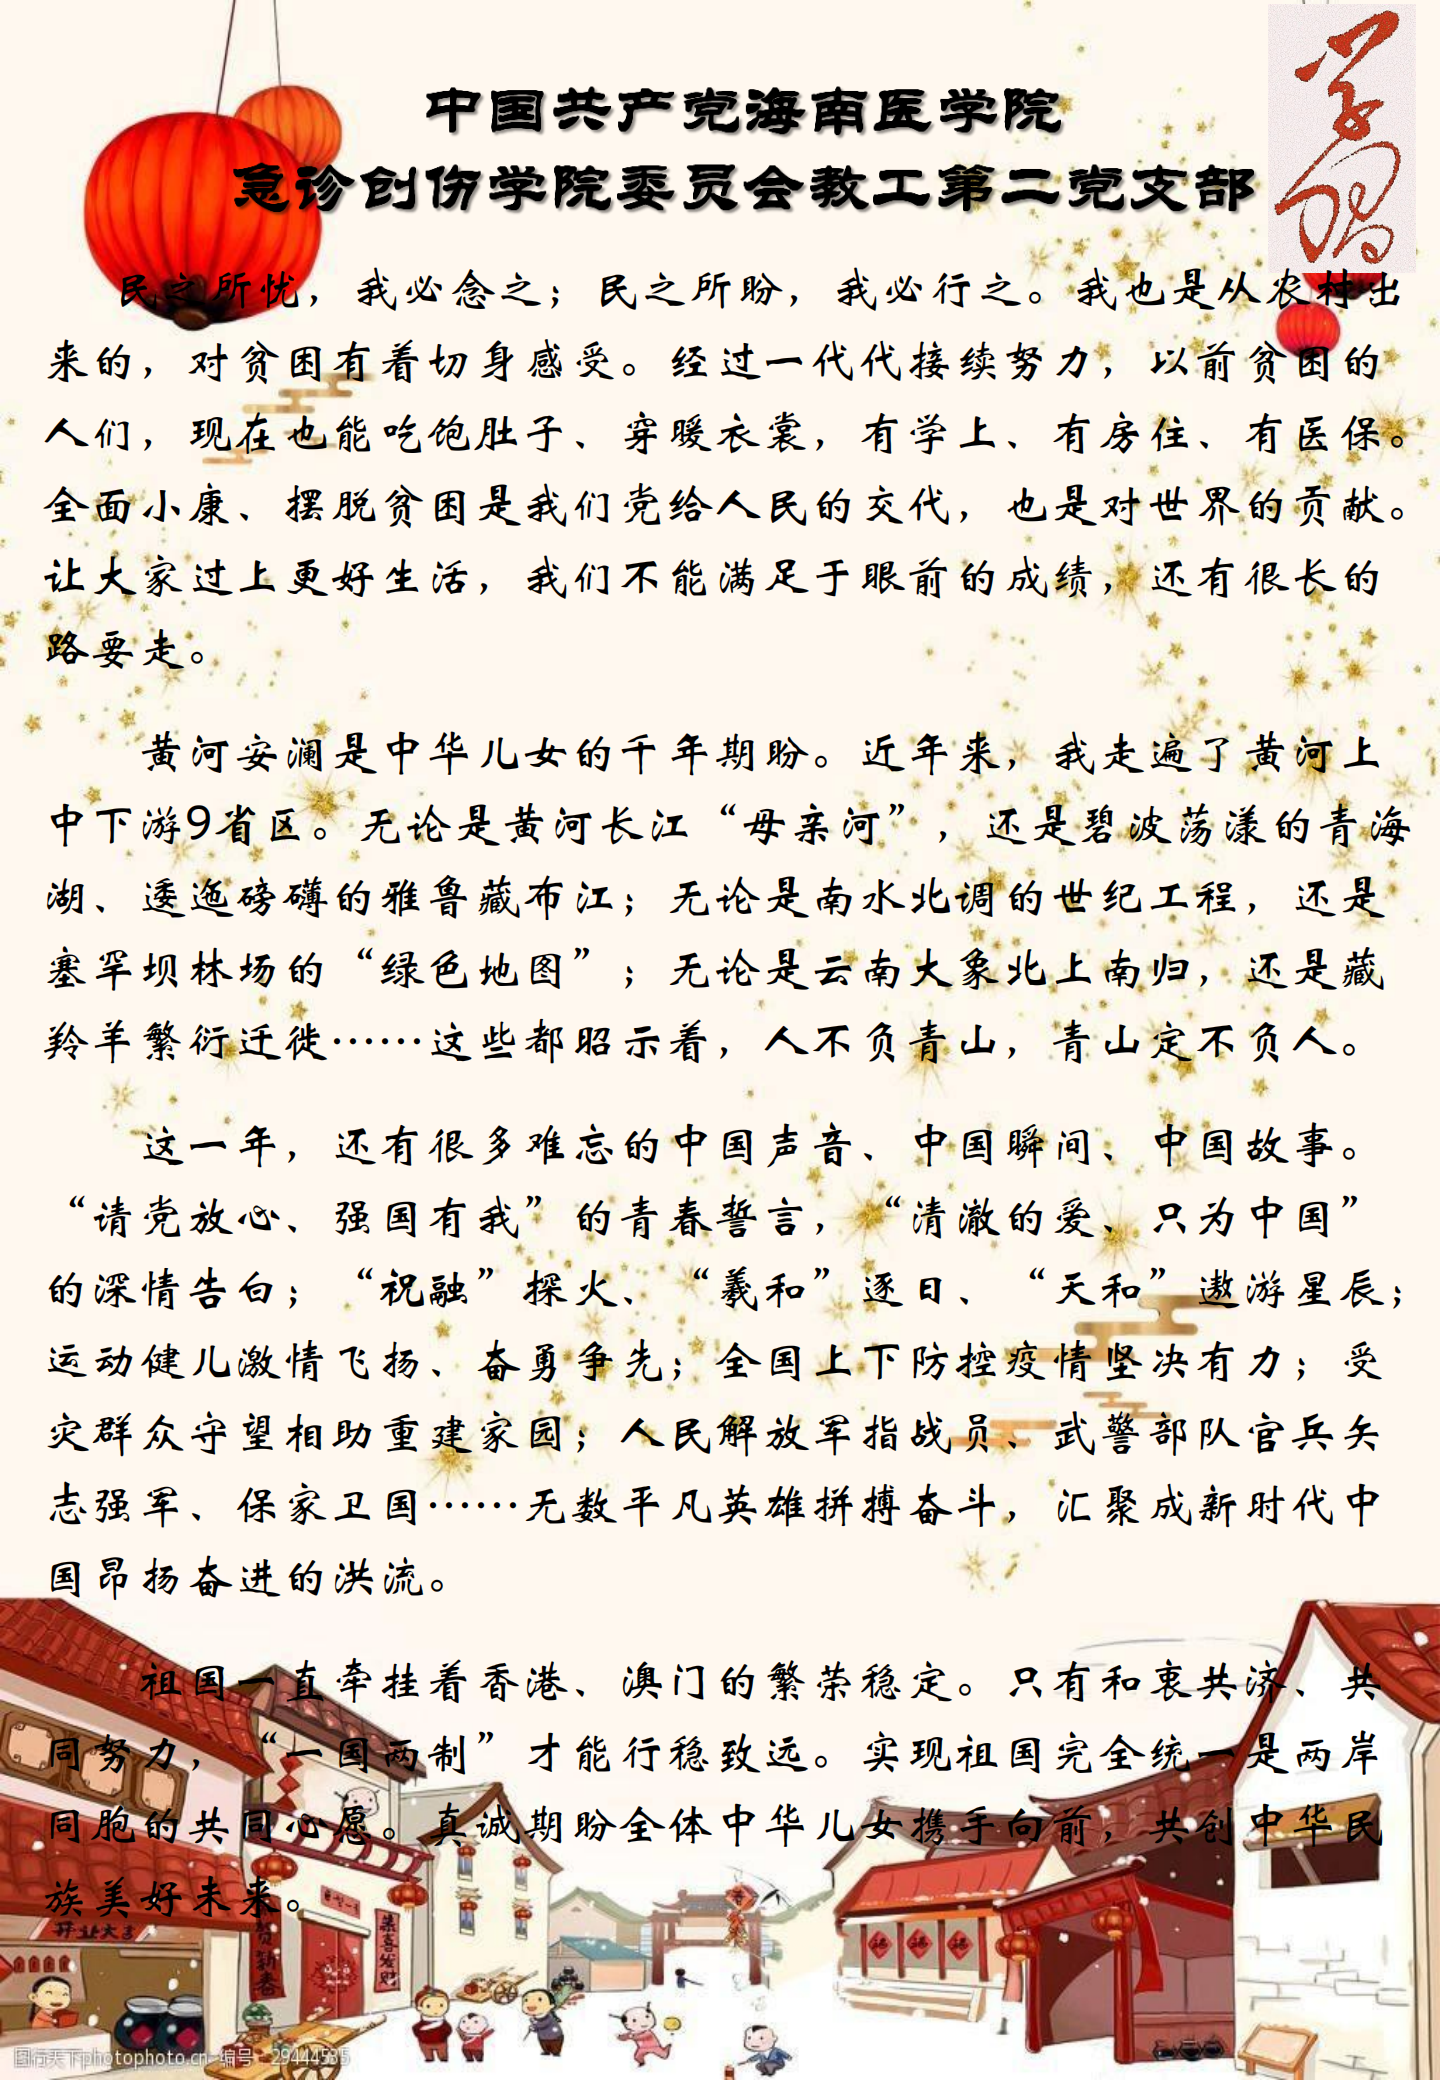 学习
中国共产党海南医学院
急诊创伤学院委员会教工第二党支部
民之所忧，我必念之；民之所盼，我必行之。我也是从农村出
来的，对贫困有着切身感受。经过一代代接续努力，以前贫困的
人们，现在也能吃饱肚子、穿暖衣裳，有学上、有房住、有医保。
全面小康、摆脱贫困是我们党给人民的交代，也是对世界的贡献。
让大家过上更好生活，我们不能满足于眼前的成绩，还有很长的
路要走。
黄河安澜是中华儿女的千年期盼。近年来，我走遍了黄河上
中下游9省区。无论是黄河长江“母亲河”，还是碧波荡漾的青海
湖、逶迤磅礴的雅鲁藏布江；无论是南水北调的世纪工程，还是
塞罕坝林场的“绿色地图”；无论是云南大象北上南归，还是藏
羚羊繁衍迁徙……这些都昭示着，人不负青山，青山定不负人。
这一年，还有很多难忘的中国声音、中国瞬间、中国故事。
“请党放心、强国有我”的青春誓言，“清澈的爱、只为中国”
的深情告白；“祝融”探火、“羲和”逐日、“天和”遨游星辰；
运动健儿激情飞扬、奋勇争先；全国上下防控疫情坚决有力；受
灾群众守望相助重建家园；人民解放军指战员、武警部队官兵矢
志强军、保家卫国……无数平凡英雄拼搏奋斗，汇聚成新时代中
国昂扬奋进的洪流。
祖国一直牵挂着香港、澳门的繁荣稳定。只有和衷共济、共
同努力，“一国两制”才能行稳致远。实现祖国完全统一是两岸
同胞的共同心愿。真诚期盼全体中华儿女携手向前，共创中华民
族美好未来。
开业大吉
贺新春
恭喜发财
福 福 福
图行天下photophoto.cn 编号：29444535